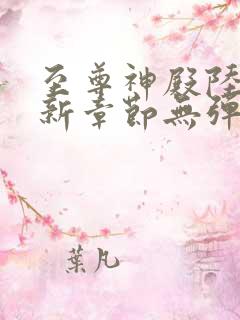 至尊神殿陸
新章節無彈
葉凡